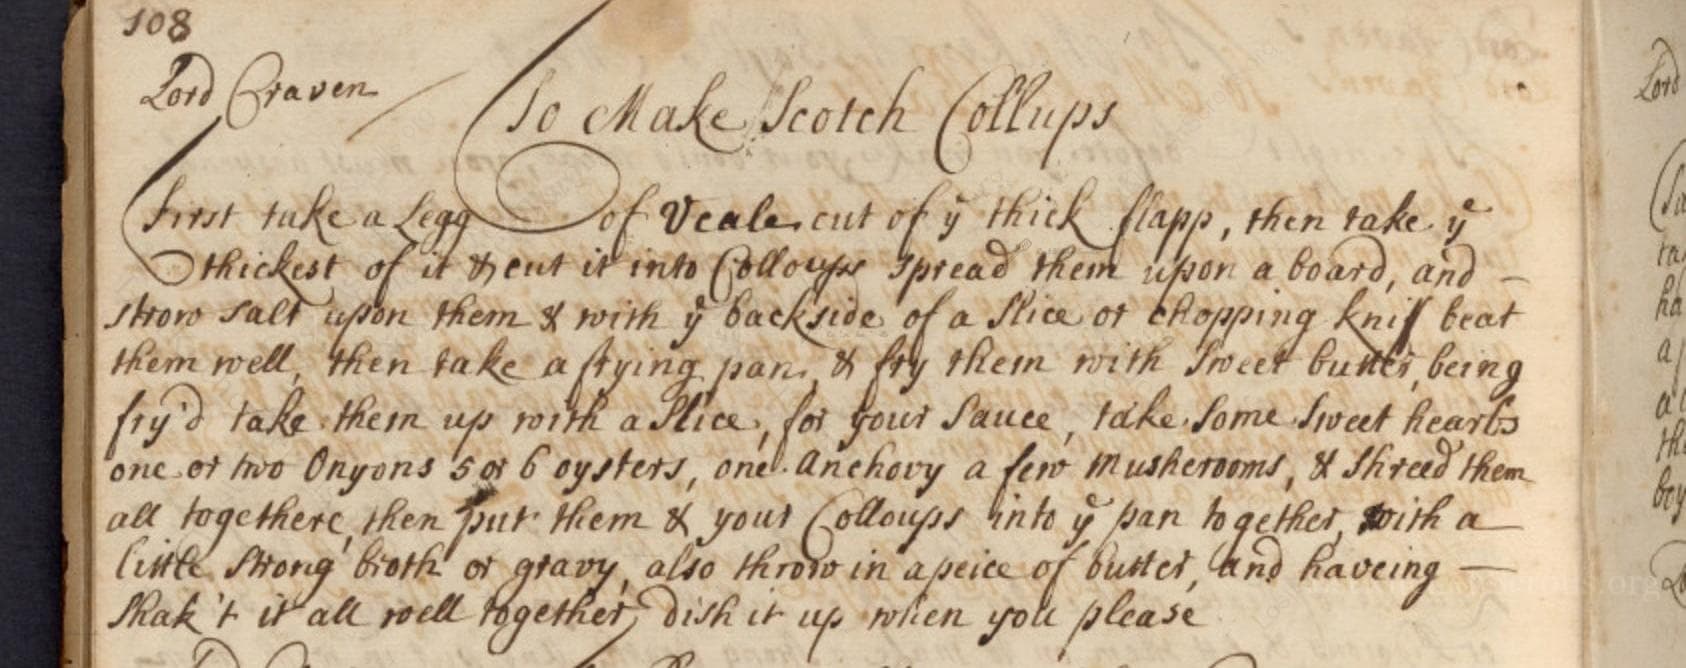 108
Lord Craven
To Make Scotch Collups
First take a Legg of Veale cut of yᵉ thick flapp, then take yᵉ
thickest of it & cut it into Colloups spread them upon a board, and
strow salt upon them & with yᵉ backside of a Slice or chopping knif beat
them well, then take a frying pan, & fry them with sweet butter, being
fry'd take them up with a Slice, for your Sauce, take some sweet hearbs
one or two Onyons 5 or 6 oysters, one Anchovy a few Musherooms, & Shreed them
all togethere, then put them & your Colloups into yᵉ pan together, with a
little strong broth or gravy, also throw in a peice of butter, and haveing
Shak't it all well together, dish it up when you please
Lord